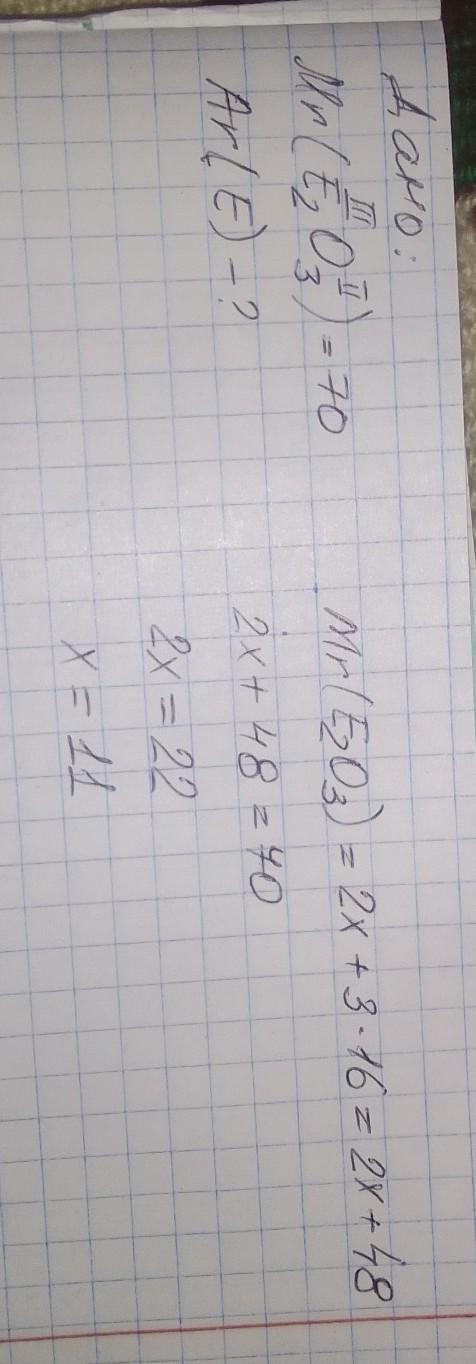 Дано:
Mr(E₂ᴵᴵᴵO₃ᴵᴵ) = 70
Ar(E) - ?
Mr(E₂O₃) = 2x + 3 · 16 = 2x + 48
2x + 48 = 70
2x = 22
x = 11